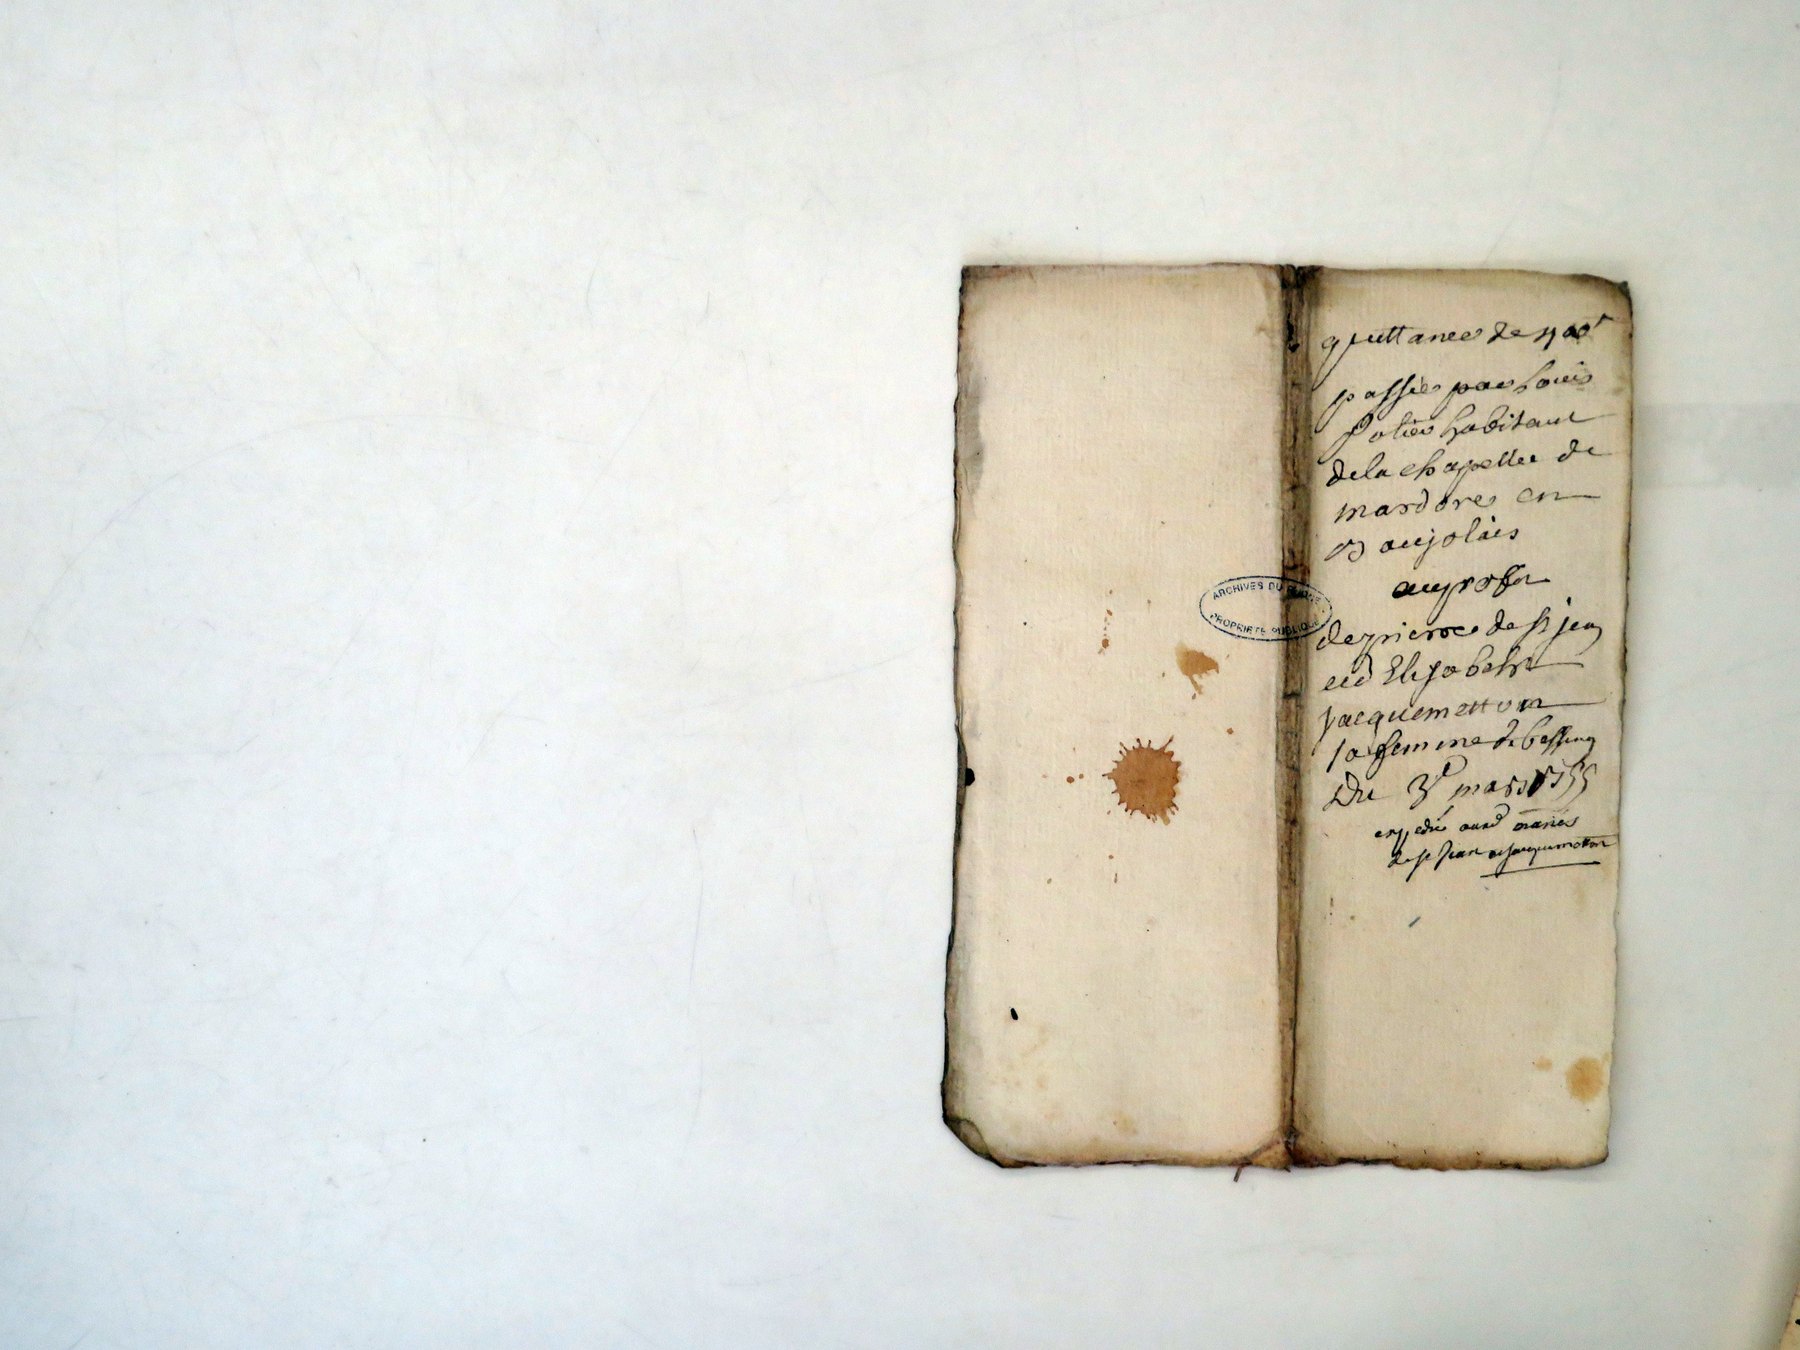 quittance de
passée par Louis
habitant
de la chapelle de
mardore en
Baujolais
au profit
de pierre de st jean
et Elisabeth
Jacquemetton
sa femme de
Du 3e mars 1755
expedié aud mariés
de st Jean et jacquemetton
ARCHIVES DU RHÔNE
PROPRIÉTÉ PUBLIQUE